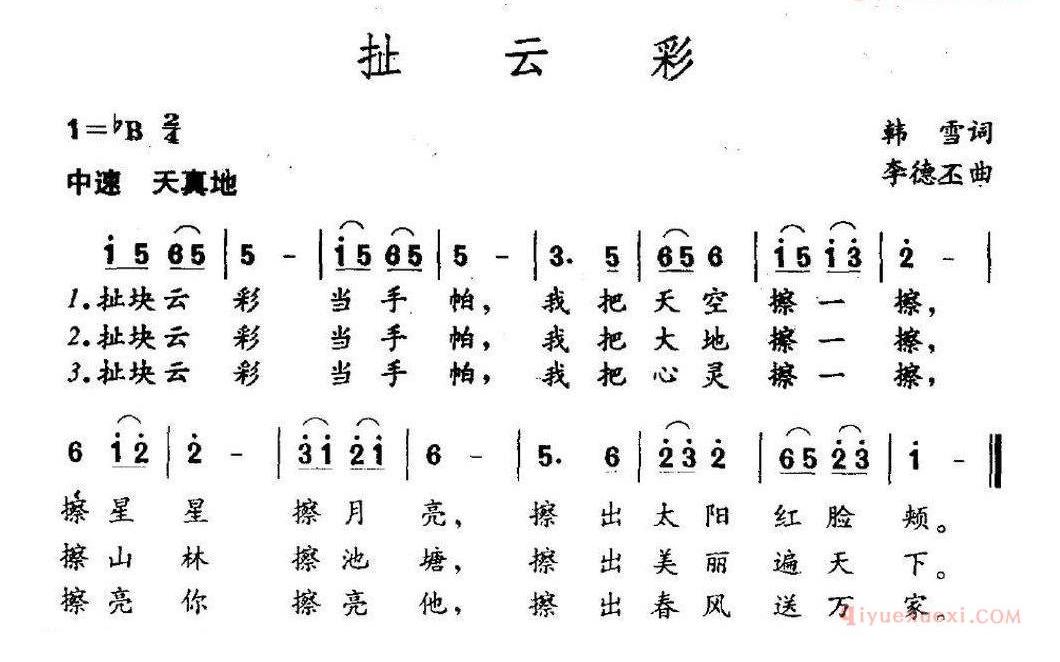 扯云彩
1=♭B 2/4
韩雪词
中速 天真地
李德丕曲
i 5 6 5 | 5 - | i 5 6 5 | 5 - | 3. 5 | 6 5 6 | i 5 i 3̇ | 2̇ - |
1.扯块云彩当手帕，我把天空擦一擦，
2.扯块云彩当手帕，我把大地擦一擦，
3.扯块云彩当手帕，我把心灵擦一擦，
6 i 2̇ | 2̇ - | 3̇ i 2̇ i | 6 - | 5. 6 | 2̇ 3̇ 2̇ | 6 5 2̇ 3̇ | i - ‖
擦星星擦月亮，擦出太阳红脸颊。
擦山林擦池塘，擦出美丽遍天下。
擦亮你擦亮他，擦出春风送万家。
qiyuexuexi.com